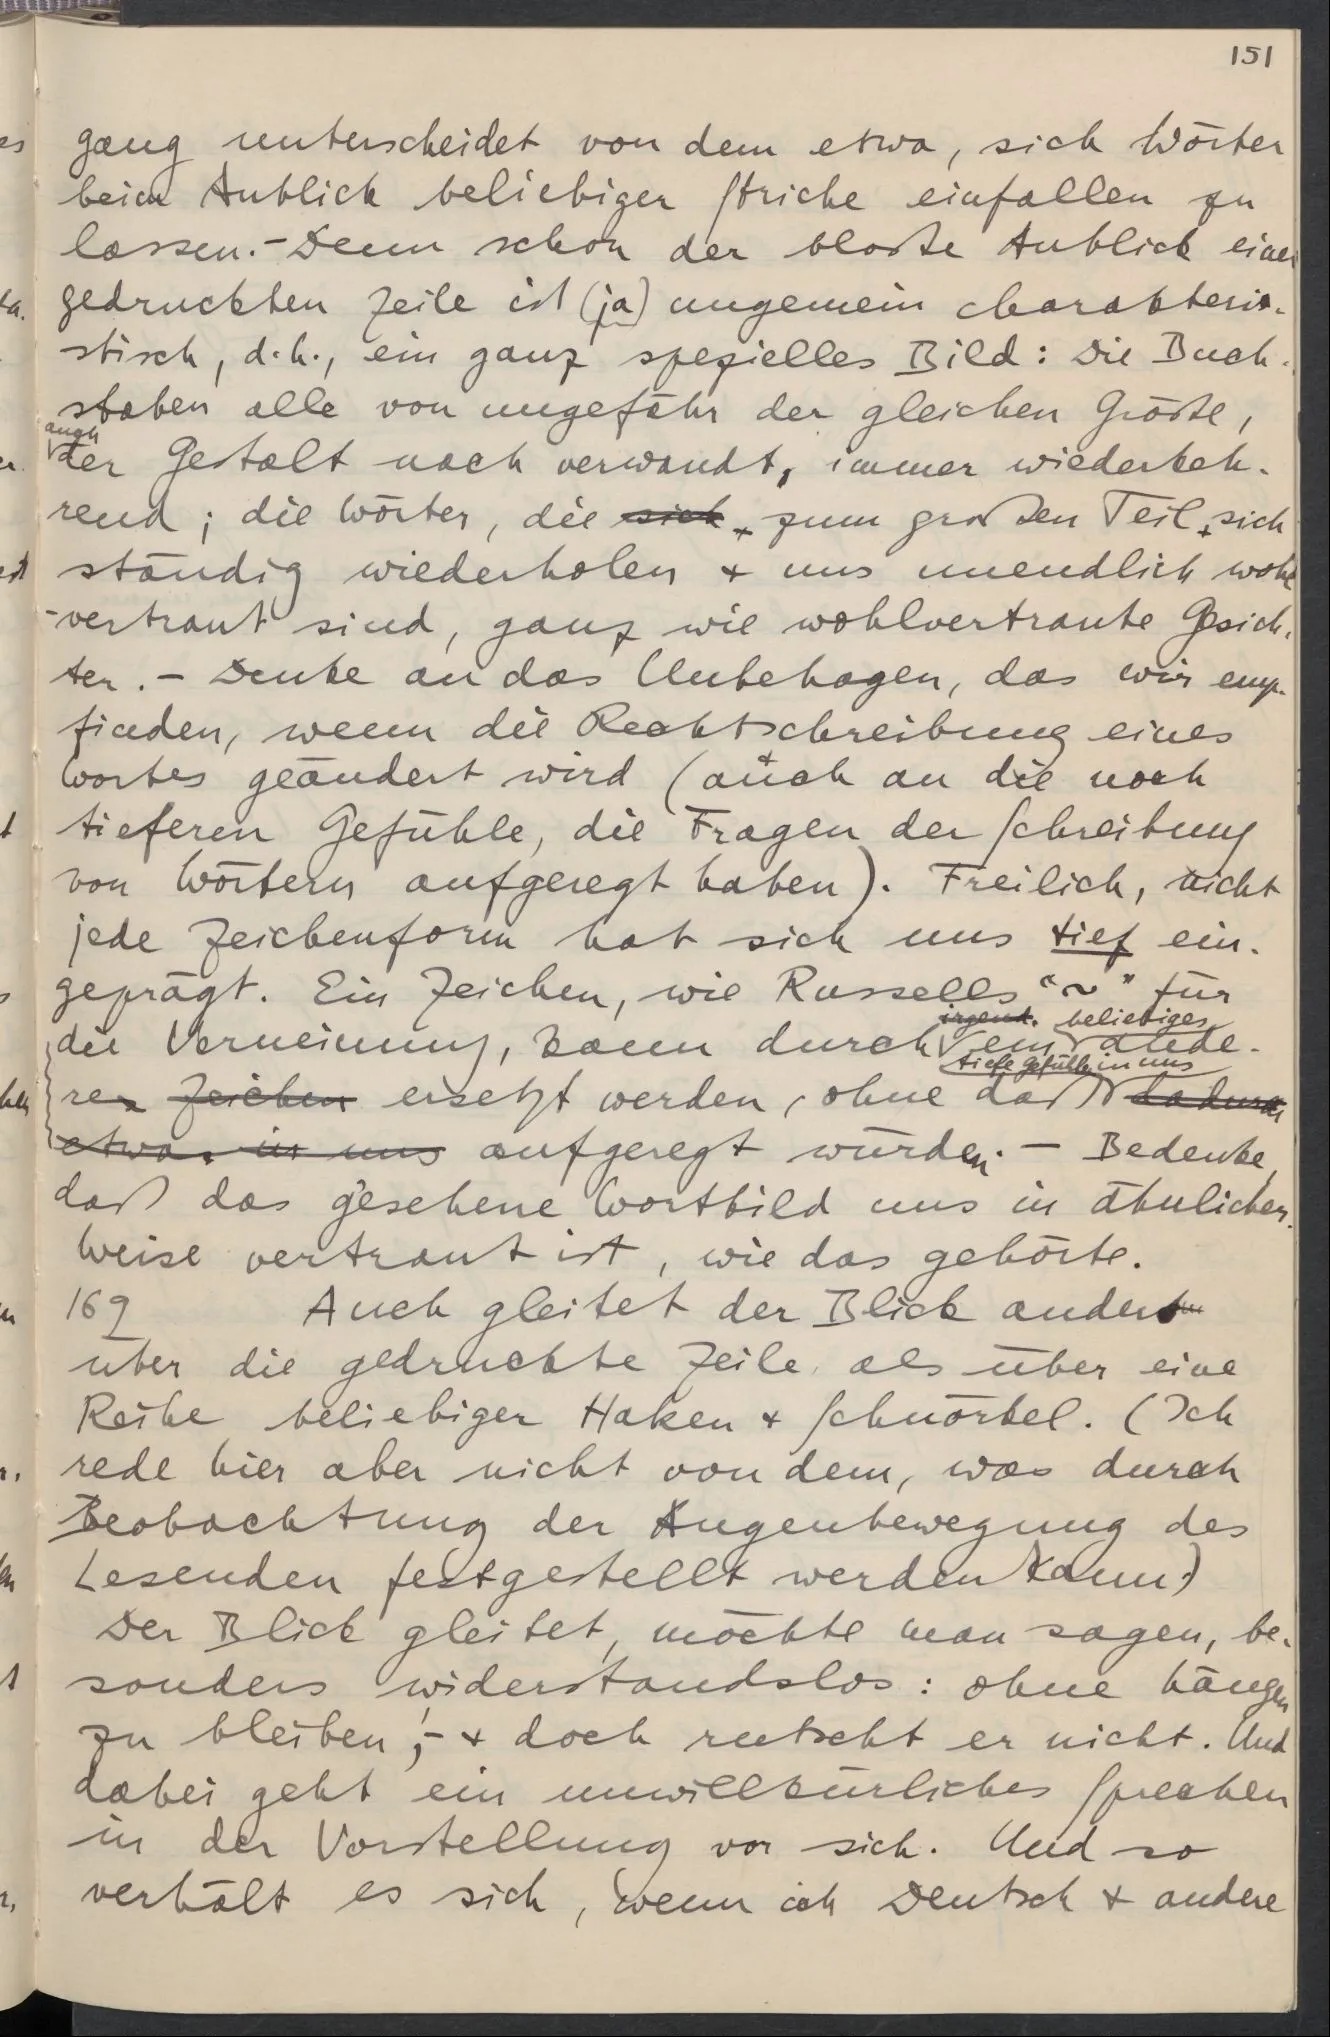 151
gang unterscheidet von dem etwa, sich Wörter
beim Anblick beliebiger Striche einfallen zu
lassen. – Denn schon der bloße Anblick einer
gedruckten Zeile ist (ja) ungemein charakteri-
stisch, d.h., ein ganz spezielles Bild: Die Buch-
staben alle von ungefähr der gleichen Größe,
auch
der Gestalt nach verwandt, immer wiederkeh-
rend; die Wörter, die sich zum großen Teil sich
ständig wiederholen & uns unendlich wohl
-vertraut sind, ganz wie wohlvertraute Gesich-
ter. – Denke an das Unbehagen, das wir emp-
finden, wenn die Rechtschreibung eines
Wortes geändert wird (auch an die noch
tieferen Gefühle, die Fragen der Schreibung
von Wörtern aufgeregt haben). Freilich, nicht
jede Zeichenform hat sich uns tief ein-
geprägt. Ein Zeichen, wie Russells “~” für
irgend beliebiges
die Verneinung, kann durch ein ande-
tiefe Gefühle in uns
res Zeichen ersetzt werden, ohne daß dadurch
etwas in uns aufgeregt würden. – Bedenke,
daß das gesehene Wortbild uns in ähnlicher
Weise vertraut ist, wie das gehörte.
169 Auch gleitet der Blick anders
über die gedruckte Zeile als über eine
Reihe beliebiger Haken & Schnörkel. (Ich
rede hier aber nicht von dem, was durch
Beobachtung der Augenbewegung des
Lesenden festgestellt werden kann.)
Der Blick gleitet, möchte man sagen, be-
sonders widerstandslos: ohne hängen
zu bleiben, – & doch rutscht er nicht. Und
dabei geht ein unwillkürliches Sprechen
in der Vorstellung vor sich. Und so
verhält es sich, wenn ich Deutsch & andere